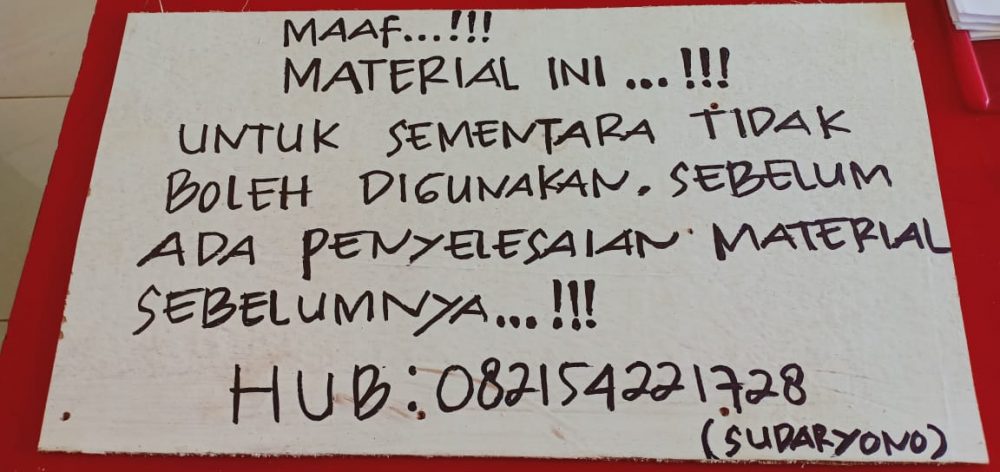 MAAF...!!!
MATERIAL INI ...!!!
UNTUK SEMENTARA TIDAK
BOLEH DIGUNAKAN. SEBELUM
ADA PENYELESAIAN MATERIAL
SEBELUMNYA...!!!
HUB: 082154221728
(SUDARYONO)